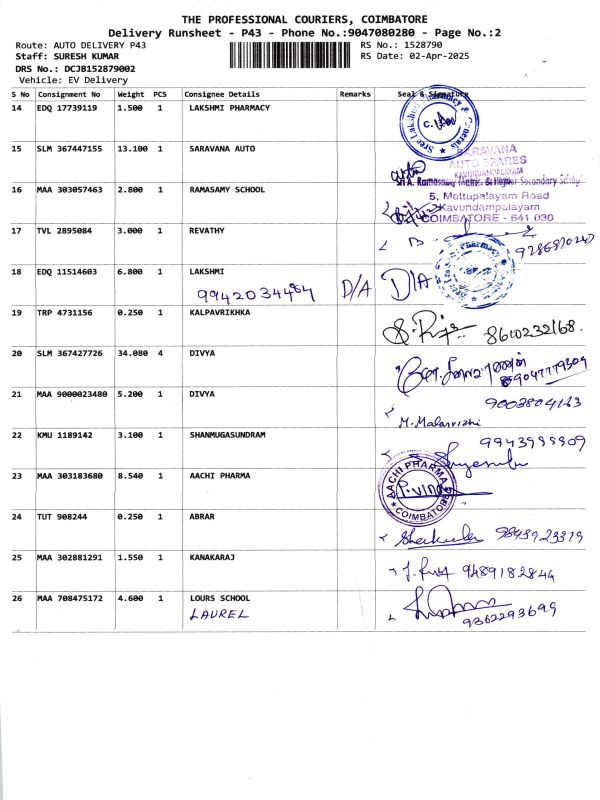 THE PROFESSIONAL COURIERS, COIMBATORE
Delivery Runsheet - P43 - Phone No.:9047080280 - Page No.:2
Route: AUTO DELIVERY P43 RS No.: 1528790
Staff: SURESH KUMAR RS Date: 02-Apr-2025
DRS No.: DCJB152879002
Vehicle: EV Delivery
S No Consignment No Weight PCS Consignee Details Remarks Seal & Signature
14 EDQ 17739119 1.500 1 LAKSHMI PHARMACY
15 SLM 367447155 13.100 1 SARAVANA AUTO
SARAVANA
AUTO SPARES
KAVUNDAMPALAYAM
16 MAA 303057463 2.800 1 RAMASAMY SCHOOL
Sri A. Ramasamy Matric. & Higher Secondary School
5, Mettupalayam Road
Kavundampalayam
COIMBATORE - 641 030
17 TVL 2895084 3.000 1 REVATHY
18 EDQ 11514603 6.800 1 LAKSHMI
9942034464 D/A D/A
19 TRP 4731156 0.250 1 KALPAVRIKHKA
8610232168.
20 SLM 367427726 34.080 4 DIVYA
21 MAA 9000023480 5.200 1 DIVYA
9003804163
M. Malarvizhi
22 KMU 1189142 3.100 1 SHANMUGASUNDRAM
23 MAA 303183680 8.540 1 AACHI PHARMA
AACHI PHARMA
COIMBATORE
24 TUT 908244 0.250 1 ABRAR
25 MAA 302881291 1.550 1 KANAKARAJ
9489182844
26 MAA 708475172 4.600 1 LOURS SCHOOL
LAUREL
9362293699